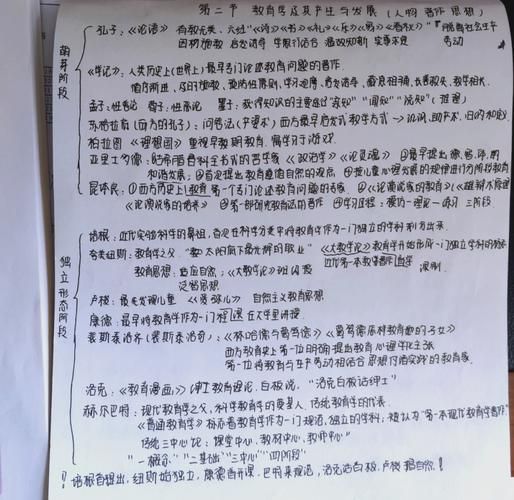 第二节 教育学及其产生与发展（人物 著作 思想）
萌芽阶段
孔子：《论语》 有教无类、六经"《诗》《书》《礼》《乐》《易》《春秋》" 脱离社会生产
因材施教 启发诱导 学思行结合 温故知新 劳动
《学记》：人类历史上（世界上）最早专门论述教育问题的著作.
循序渐进、 学习观摩、启发诱导、藏息相辅、长善救失、教学相长.
孟子：性善论 荀子：性恶论 墨子：获得知识的主要途径"亲知" "闻知" "说知"（推理）
苏格拉底（西方的孔子）：问答法（产婆术）西方最早启发式教学方式 → 讥讽、助产术、归纳和定义.
柏拉图《理想国》 重视早期教育、寓学习于游戏.
亚里士多德：古希腊百科全书式的哲学家《政治学》《论灵魂》 ①最早提出德、智、体、美
和谐发展；②首定提出教育遵循自然的观点 ③按儿童心理发展的规律进行分阶段教育
昆体良：①西方历史上教育第一个专门论述教育问题的专家 ②《论演说家的教育》《雄辩术原理》
《论演说家的培养》 ③第一部研究教学法的著作 ④学习过程：模仿—理论—练习 三阶段
独立形态阶段
培根：近代实验科学的鼻祖，首次在科学分类中将教育学作为一门独立的学科划分出来.
夸美纽斯：教育学之父、"太阳底下最光辉的职业" 《大教学论》教育学开始形成一门独立学科的标志
近代第一本教育著作
教育思想：适应自然；《大教学论》班级授课制.
泛智思想
卢梭：最先发现儿童 《爱弥儿》 自然主义教育思想
康德：最早将教育学作为一门课程在大学里讲授.
裴斯泰洛齐（裴斯泰洛奇）：《林哈德与葛笃德》《葛笃德怎样教育她的子女》
西方教育史上第一位明确提出教育心理学化主张
第一位将教育与生产劳动相结合思想付诸实践的教育家.
洛克：《教育漫画》绅士教育理论，白板说， "洛克白板话绅士"
赫尔巴特：现代教育学之父，科学教育学的奠基人，传统教育学的代表.
《普通教育学》标志着教育学作为一门规范、独立的学科；被认为"第一本现代教育学著作"
传统三中心论：课堂中心、教材中心、教师中心"
"一概念" "二基础" "三中心" "四阶段"
！培根首提出，纽斯始独立，康德首开课，巴特来规范，洛克话白板，卢梭把自然！